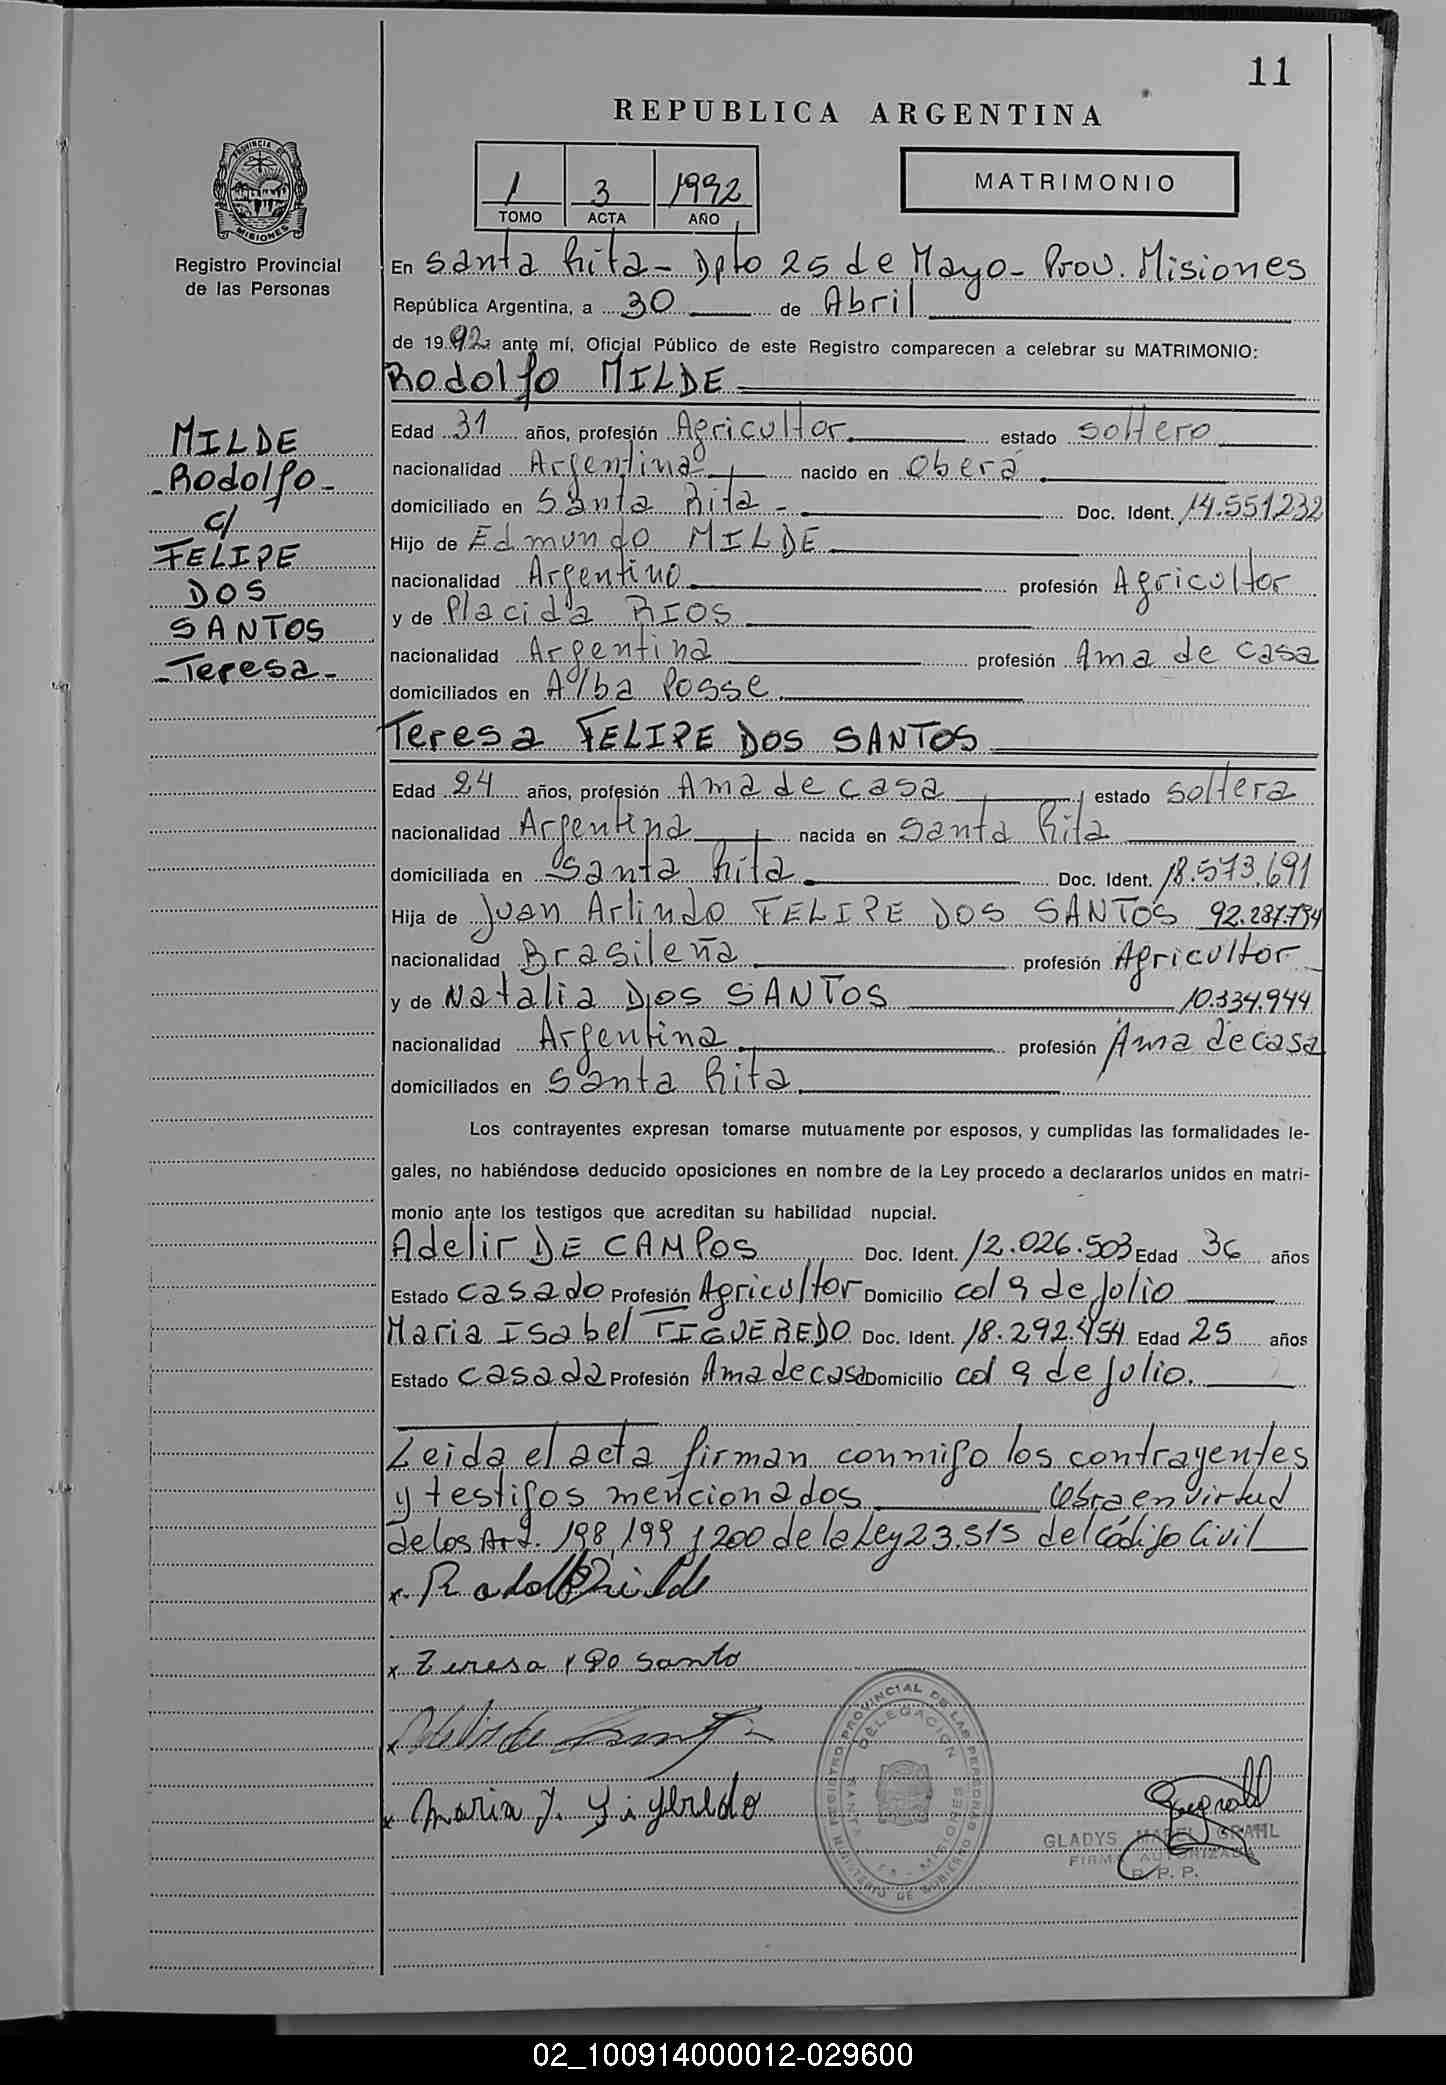 11
REPUBLICA ARGENTINA
1 3 1992
TOMO ACTA AÑO
MATRIMONIO
PROVINCIA DE
MISIONES
Registro Provincial
de las Personas
MILDE
-Rodolfo-
c/
FELIPE
DOS
SANTOS
-Teresa-
En Santa Rita - Dpto 25 de Mayo - Prov. Misiones
República Argentina, a 30 de Abril
de 1992 ante mí, Oficial Público de este Registro comparecen a celebrar su MATRIMONIO:
Rodolfo MILDE
Edad 31 años, profesión Agricultor estado soltero
nacionalidad Argentina nacido en Oberá
domiciliado en Santa Rita - Doc. Ident. 14.551232
Hijo de Edmundo MILDE
nacionalidad Argentino profesión Agricultor
y de Placida RIOS
nacionalidad Argentina profesión Ama de casa
domiciliados en Alba Posse
Teresa FELIPE DOS SANTOS
Edad 24 años, profesión Ama de casa estado soltera
nacionalidad Argentina nacida en Santa Rita
domiciliada en Santa Rita Doc. Ident. 18.573.691
Hija de Juan Arlindo FELIPE DOS SANTOS 92.287.794
nacionalidad Brasileña profesión Agricultor
y de Natalia DOS SANTOS 10.334.944
nacionalidad Argentina profesión Ama de casa
domiciliados en Santa Rita
Los contrayentes expresan tomarse mutuamente por esposos, y cumplidas las formalidades le-
gales, no habiéndose deducido oposiciones en nombre de la Ley procedo a declararlos unidos en matri-
monio ante los testigos que acreditan su habilidad nupcial.
Adelir DE CAMPOS Doc. Ident. 12.026.503 Edad 36 años
Estado casado Profesión Agricultor Domicilio col 9 de Julio
Maria Isabel FIGUEREDO Doc. Ident. 18.292.454 Edad 25 años
Estado casada Profesión Ama de casa Domicilio col 9 de Julio.
Leida el acta firman conmigo los contrayentes
y testigos mencionados Obra en virtud
de los Art. 198, 199 y 200 de la Ley 23.515 del Código Civil
x Rodolfo Milde
x Teresa F Do Santo
x
x Maria I. Figueredo
REGISTRO PROVINCIAL DE LAS PERSONAS
DELEGACION
SANTA RITA - MISIONES
MINISTERIO DE GOBIERNO
GLADYS MABEL GRAHL
FIRMA AUTORIZADA
R. P. P.
02_100914000012-029600